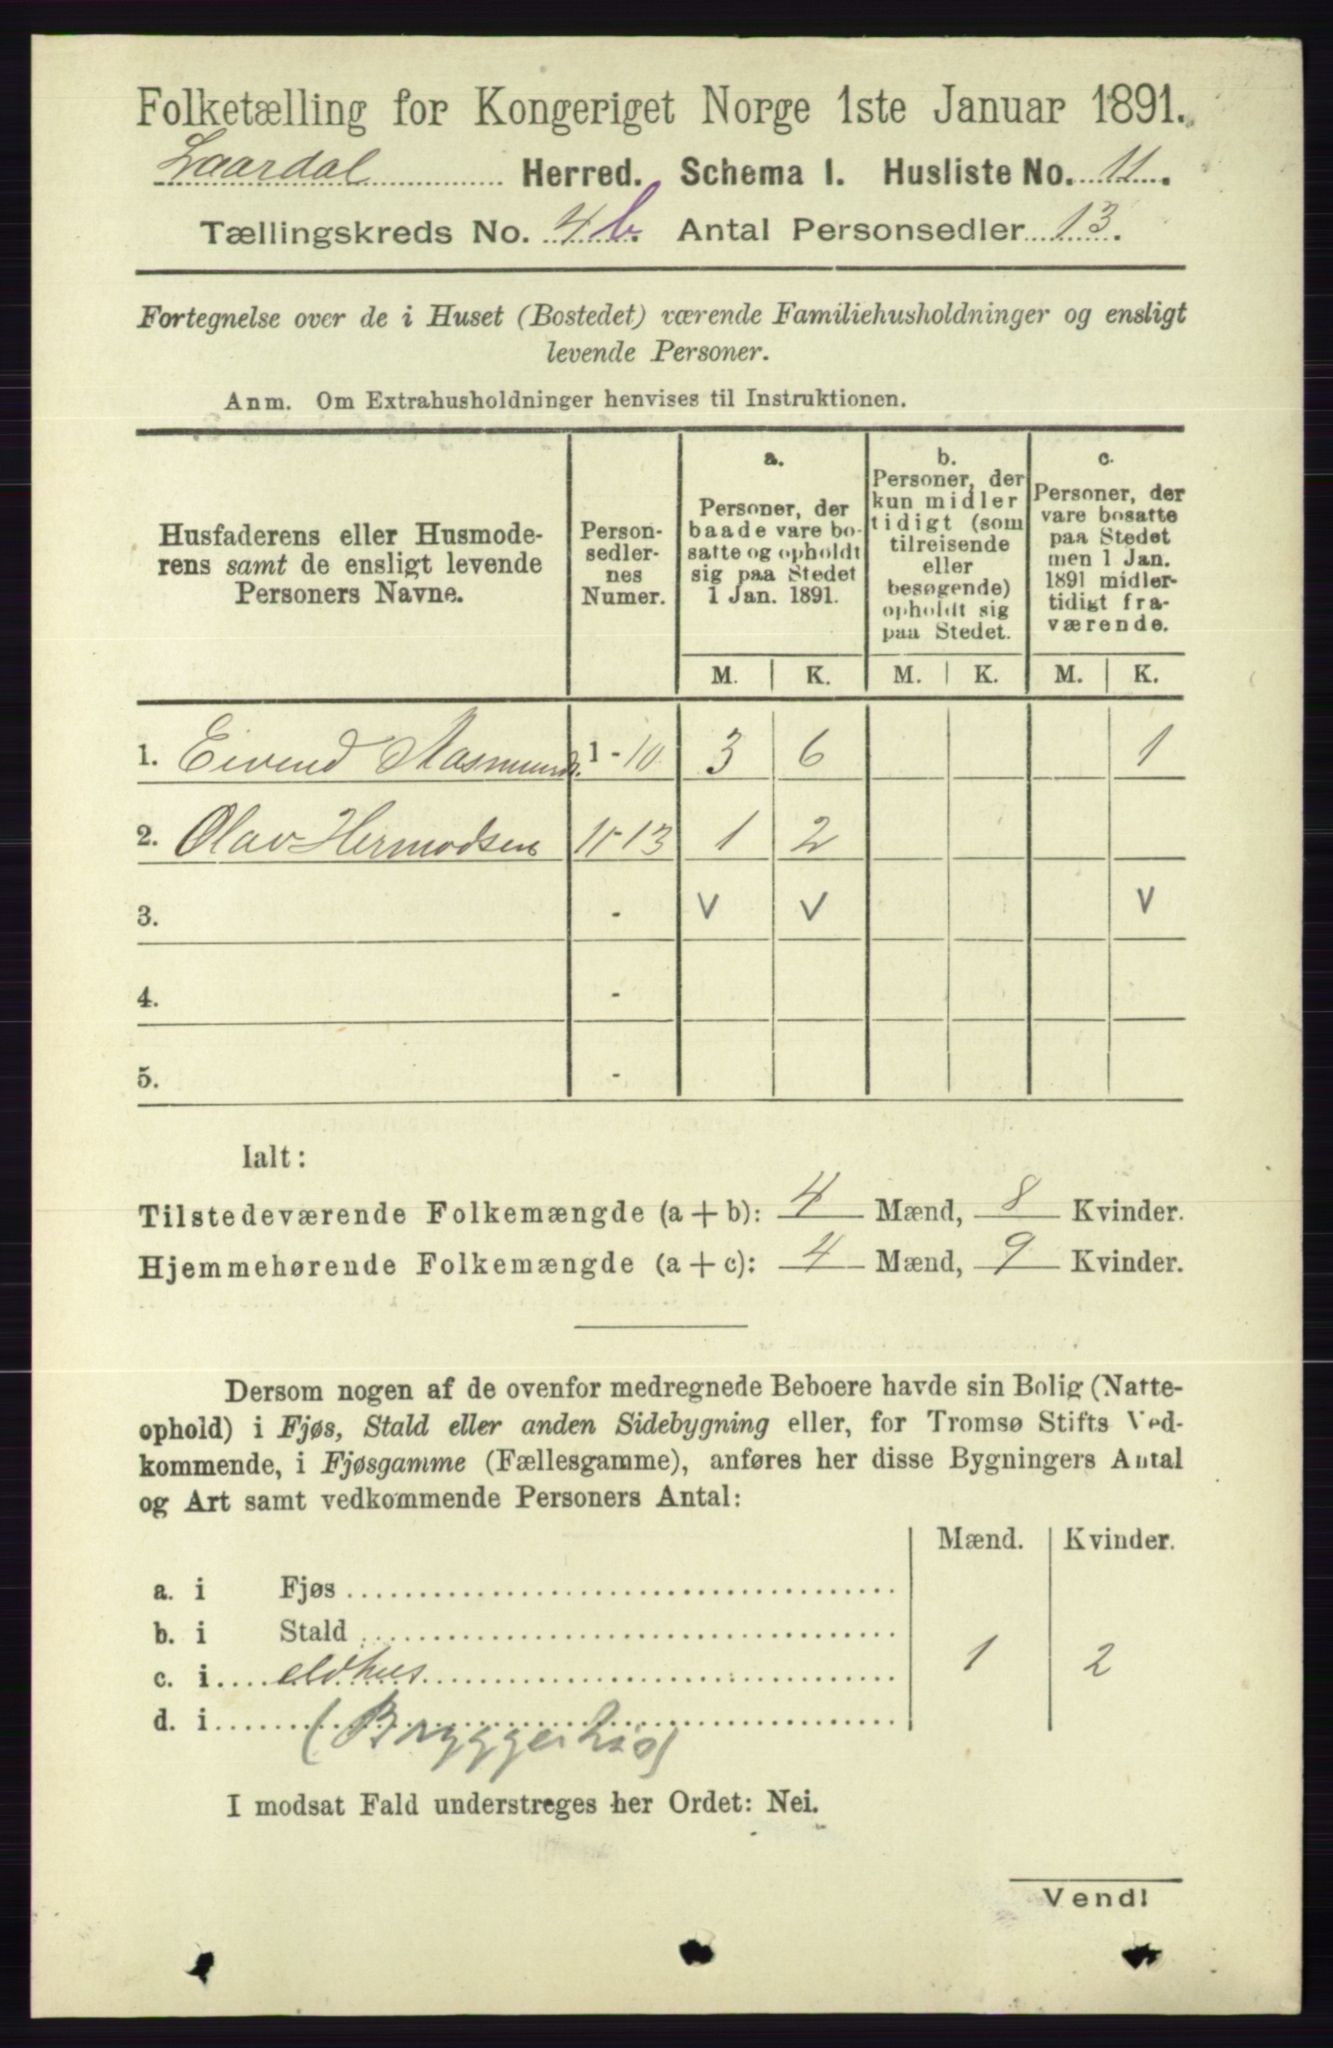 Folketælling for Kongeriget Norge 1ste Januar 1891.
Laardal Herred. Schema I. Husliste No. 11.
Tællingskreds No. 4b. Antal Personsedler 13.
Fortegnelse over de i Huset (Bostedet) værende Familiehusholdninger og ensligt
levende Personer.
Anm. Om Extrahusholdninger henvises til Instruktionen.
Husfaderens eller Husmode-
rens samt de ensligt levende
Personers Navne.
Person-
sedler-
nes
Numer.
a.
Personer, der
baade vare bo-
satte og opholdt
sig paa Stedet
1 Jan. 1891.
b.
Personer, der
kun midler
tidigt (som
tilreisende
eller
besøgende)
opholdt sig
paa Stedet.
c.
Personer, der
vare bosatte
paa Stedet
men 1 Jan.
1891 midler-
tidigt fra-
værende.
M. K. M. K. M. K.
1. Eivind Aasmunds. 1-10 3 6 1
2. Olav Hermodsen 11-13 1 2
3. - V V V
4. -
5. -
Ialt:
Tilstedeværende Folkemængde (a + b): 4 Mænd, 8 Kvinder.
Hjemmehørende Folkemængde (a + c): 4 Mænd, 9 Kvinder.
Dersom nogen af de ovenfor medregnede Beboere havde sin Bolig (Natte-
ophold) i Fjøs, Stald eller anden Sidebygning eller, for Tromsø Stifts Ved-
kommende, i Fjøsgamme (Fællesgamme), anføres her disse Bygningers Antal
og Art samt vedkommende Personers Antal:
Mænd. Kvinder.
a. i Fjøs
b. i Stald
c. i eldhus 1 2
d. i (Bryggerhus)
I modsat Fald understreges her Ordet: Nei.
Vend!